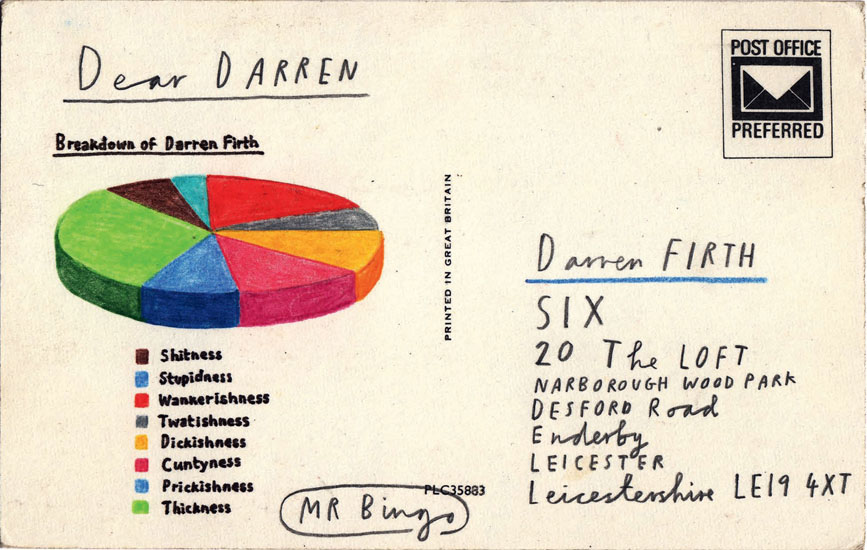 Dear DARREN
Breakdown of Darren Firth
Shitness
Stupidness
Wankerishness
Twatishness
Dickishness
Cuntyness
Prickishness
Thickness
MR Bingo
PLC35883
PRINTED IN GREAT BRITAIN
POST OFFICE
PREFERRED
Darren FIRTH
SIX
20 The LOFT
NARBOROUGH WOOD PARK
DESFORD Road
Enderby
LEICESTER
Leicestershire LE19 4XT